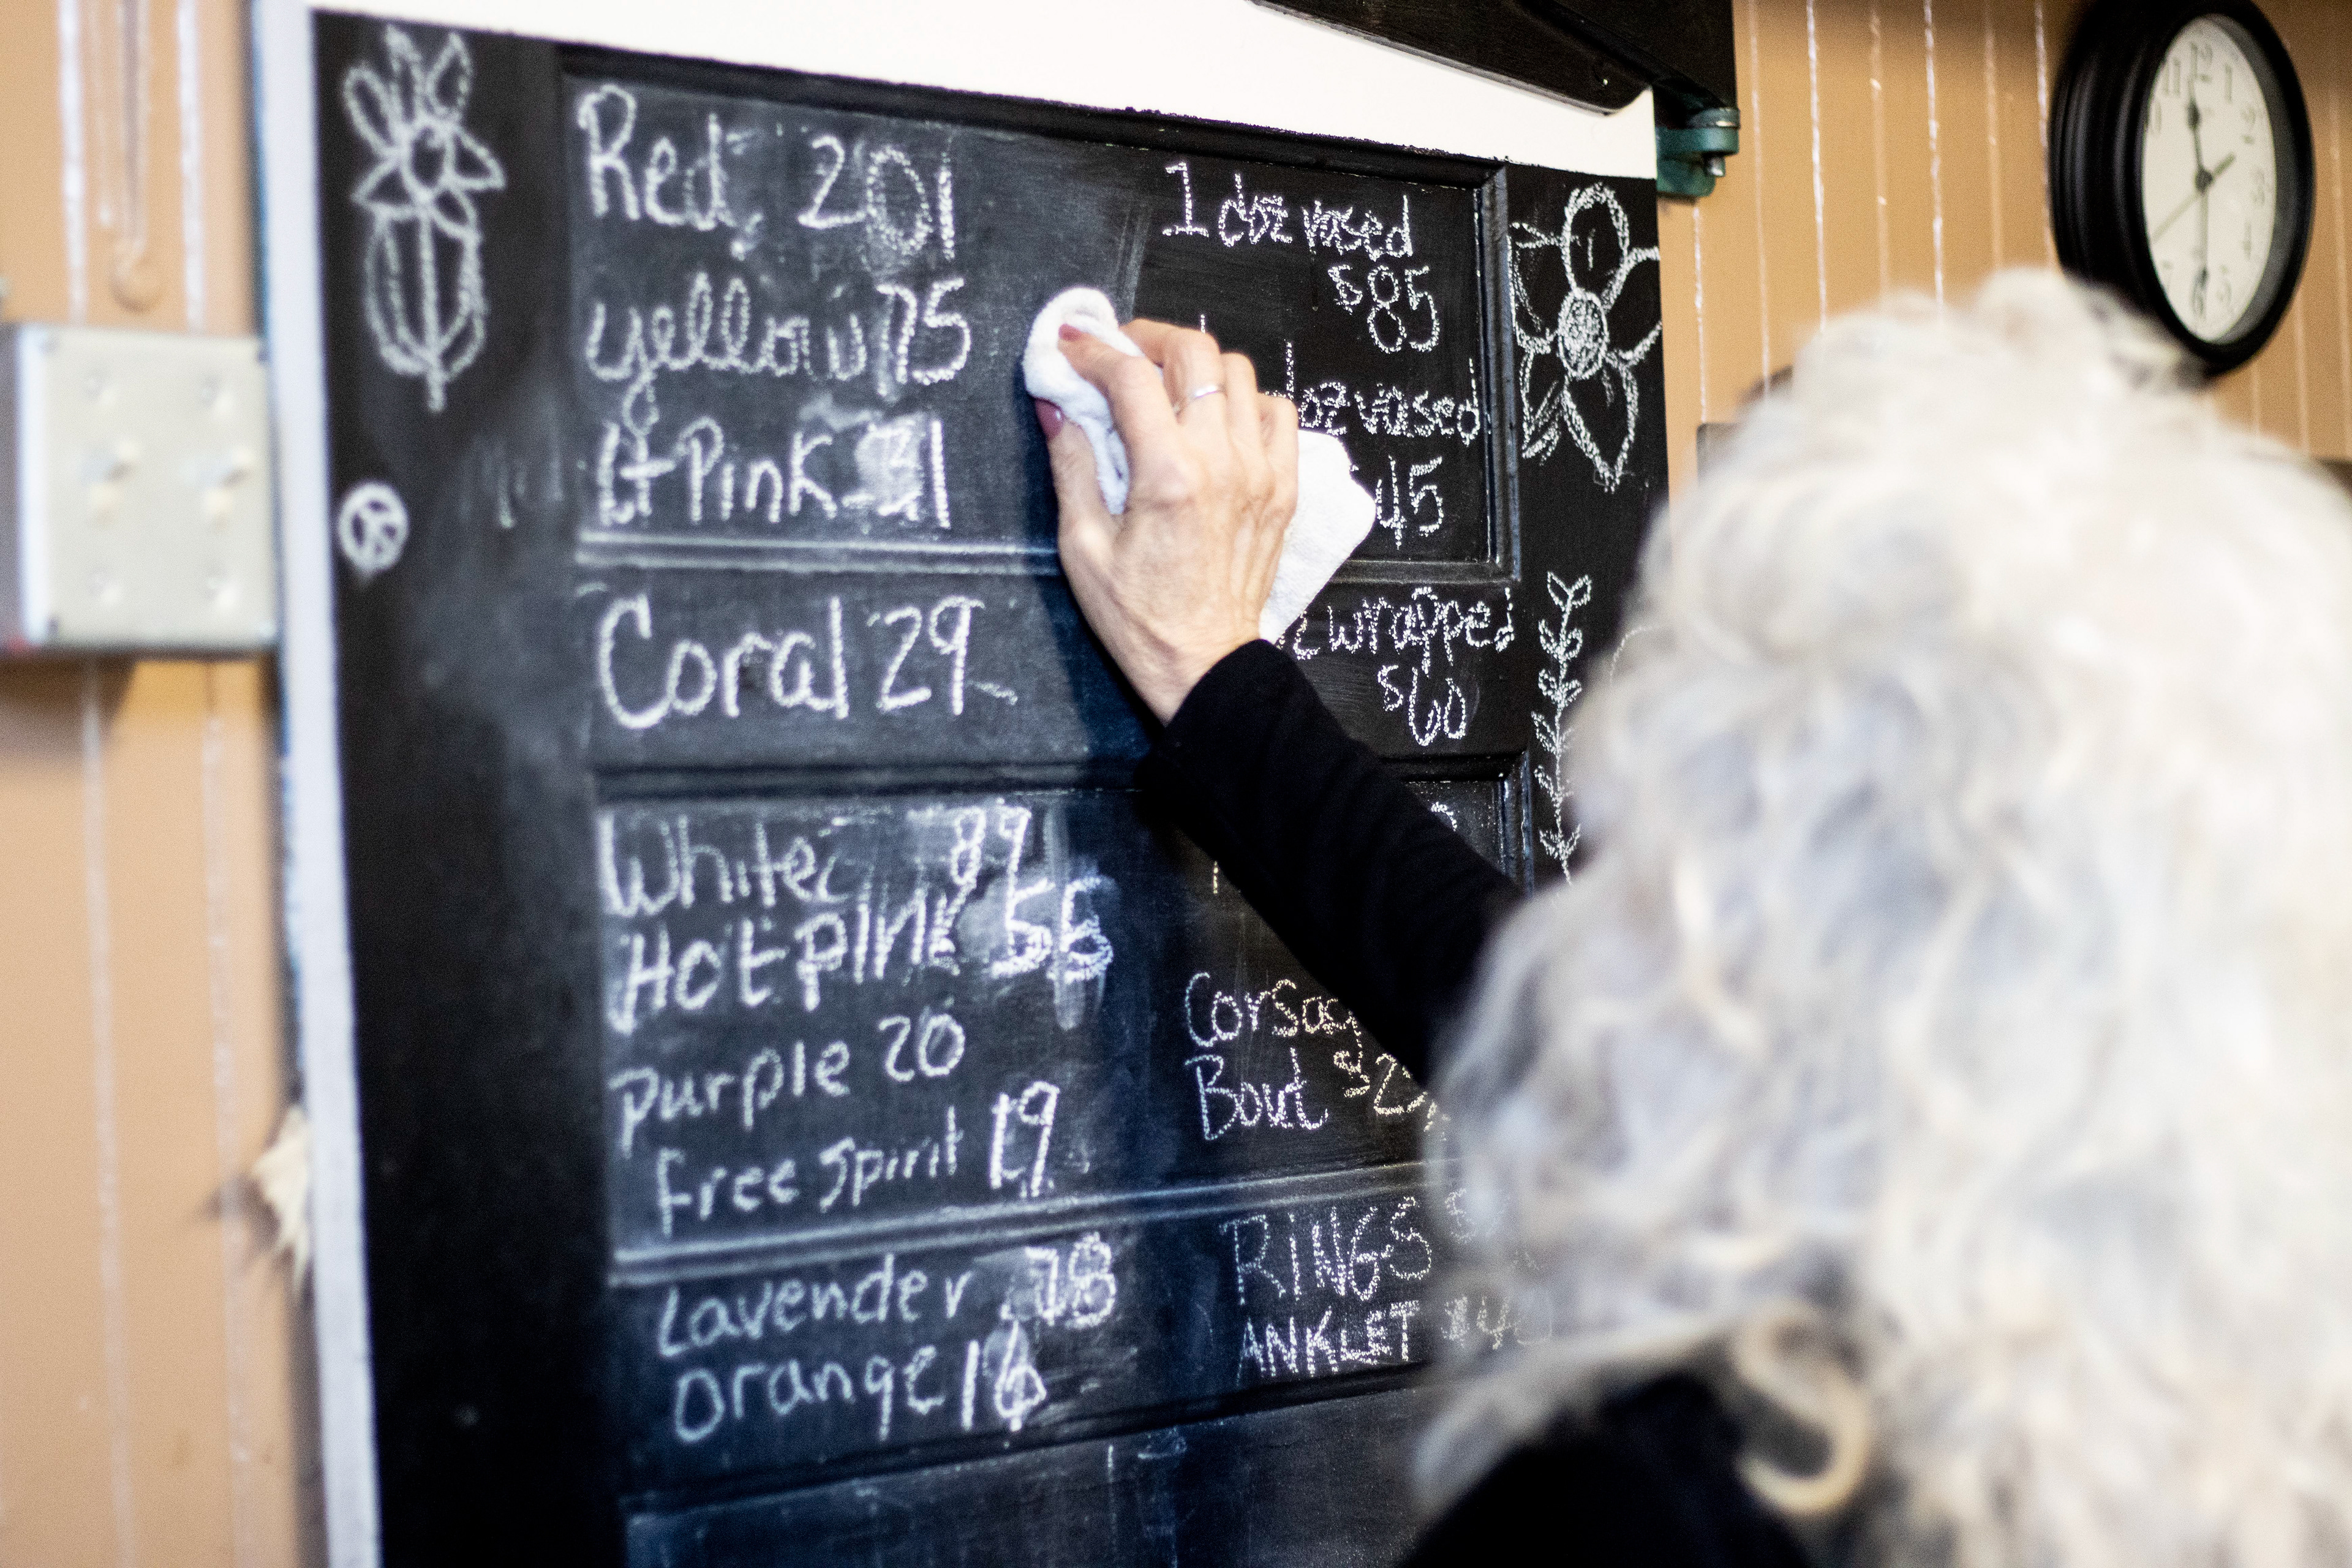 Red 201
yellow 75
Lt Pink
Coral 29
White 89
Hot Pink 55
purple 20
Free Spirit 19
Lavender 78
Orange 16
1 doz vased
$85
doz vased
45
wrapped
$60
Bout
RINGS
ANKLET
11 12 1